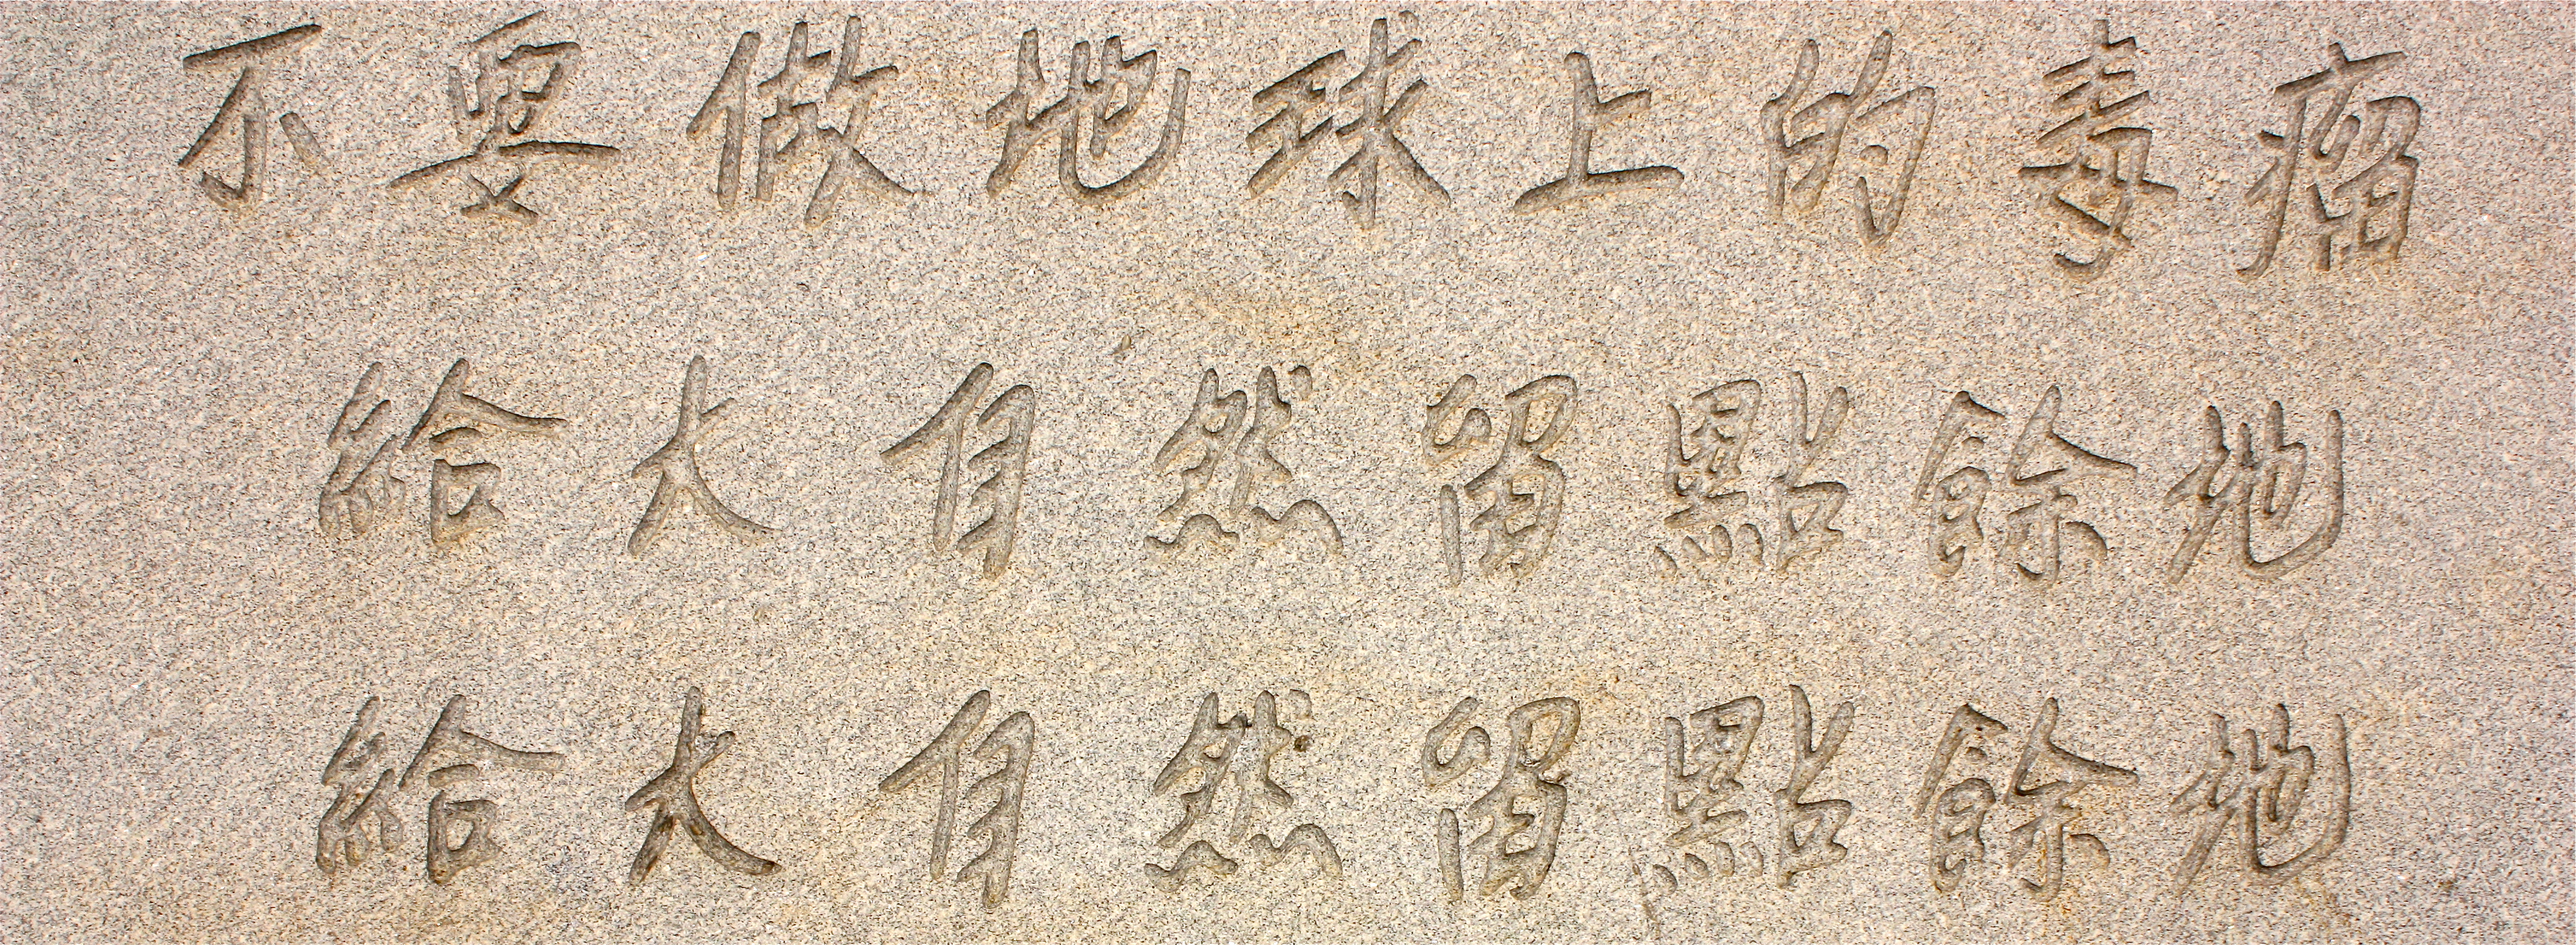 不要做地球上的毒瘤
給大自然留點餘地
給大自然留點餘地